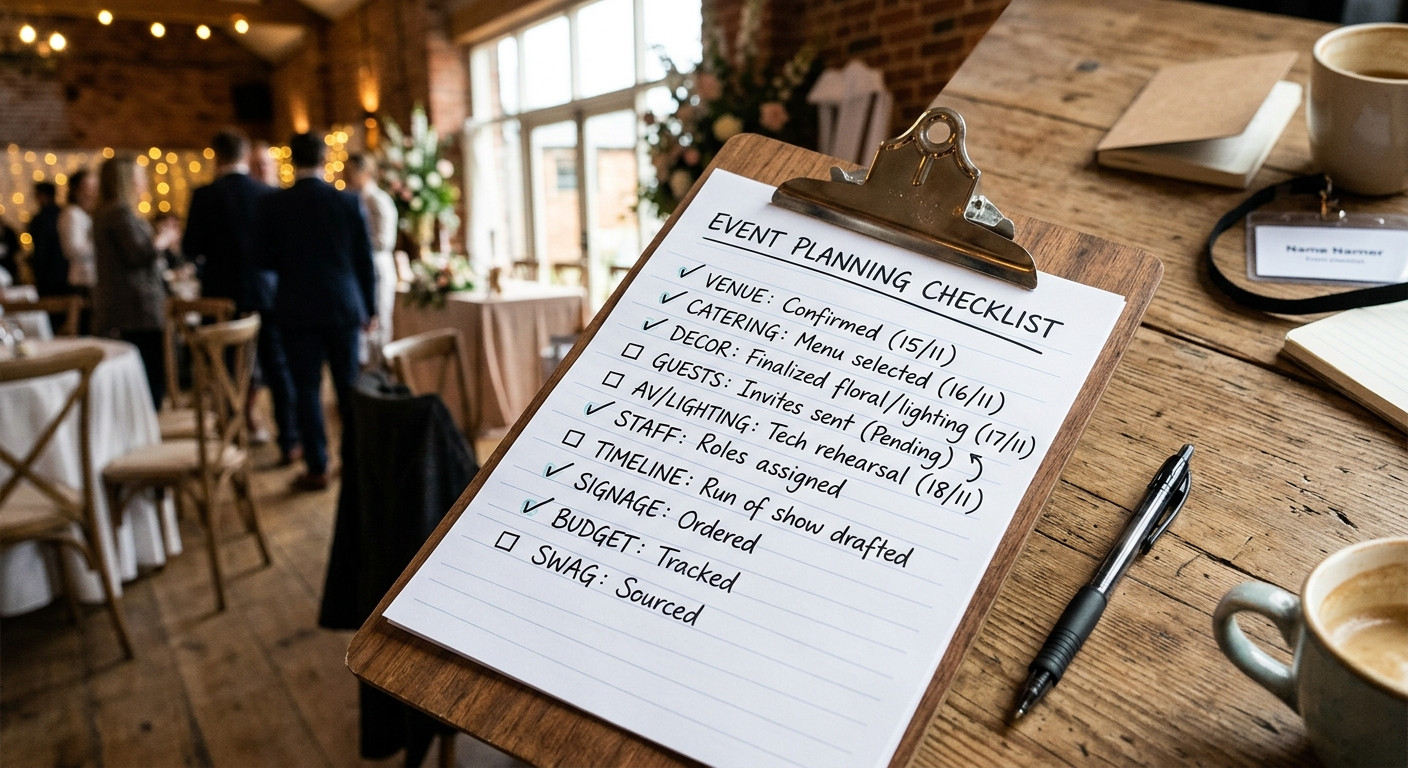 EVENT PLANNING CHECKLIST
✓ VENUE: Confirmed (15/11)
✓ CATERING: Menu selected (16/11)
✓ DECOR: Finalized floral/lighting (17/11)
☐ GUESTS: Invites sent (Pending)
☐ AV/LIGHTING: Tech rehearsal (18/11)
✓ STAFF: Roles assigned
☐ TIMELINE: Run of show drafted
✓ SIGNAGE: Ordered
✓ BUDGET: Tracked
☐ SWAG: Sourced
Name Namer